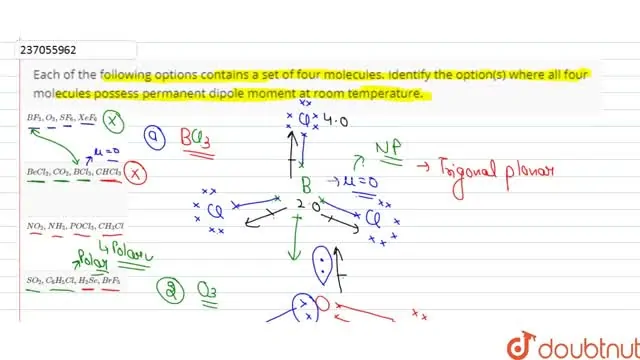 237055962
Each of the following options contains a set of four molecules. Identify the option(s) where all four
molecules possess permanent dipole moment at room temperature.
BF₃, O₃, SF₆, XeF₆ (X)
μ=0
BeCl₂, CO₂, BCl₃, CHCl₃ (X)
NO₂, NH₃, POCl₃, CH₃Cl
Polar
Polar
SO₂, C₆H₅Cl, H₂Se, BrF₅
① BCl₃
Cl 4.0
NP
→ Trigonal planar
B → μ=0
2.0
Cl
Cl
② O₃
O
doubtnut